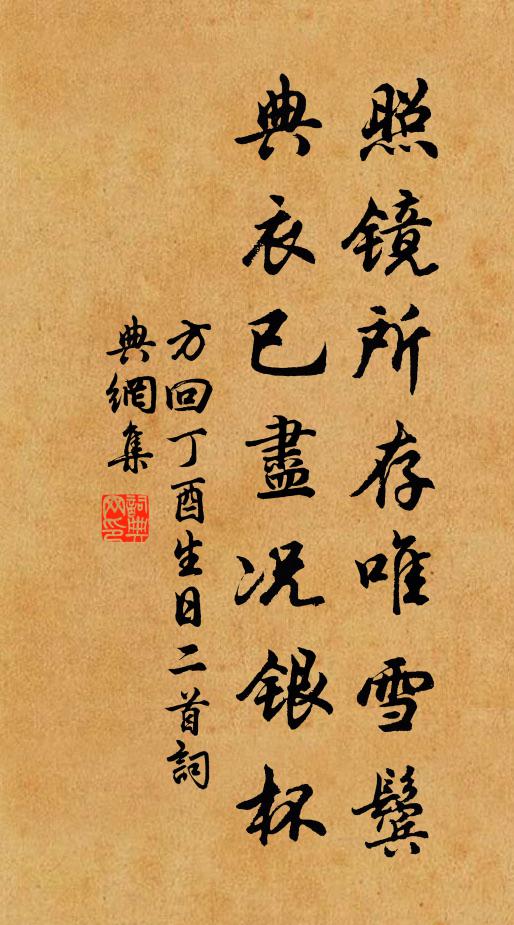 照镜所存唯雪鬓
典衣已盡况银杯
方回丁酉生日二首詞
典網集
詞典网印